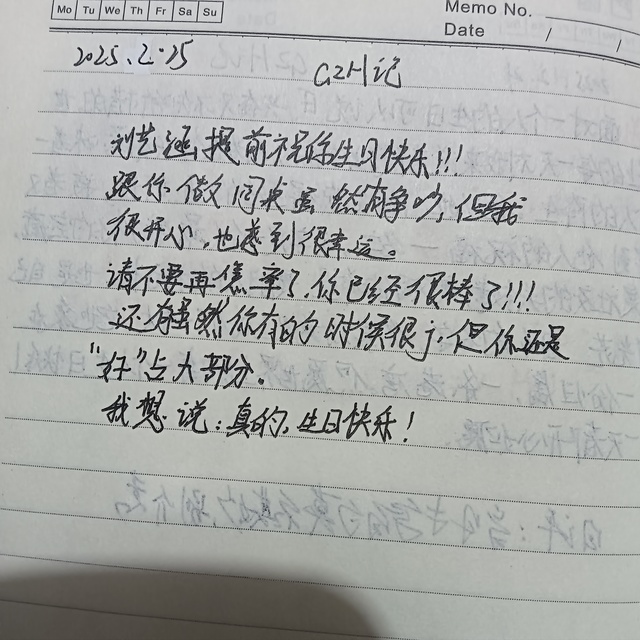 Mo Tu We Th Fr Sa Su
Memo No.
Date / /
2025.2.25
GZH记
刘艺涵提前祝你生日快乐!!!
跟你做同桌虽然有争吵,但我
很开心,也感到很幸运。
请不要再焦率了,你已经很棒了!!!
还有虽然你有的时候很,但你还是
"好"占大部分。
我想说:真的,生日快乐!